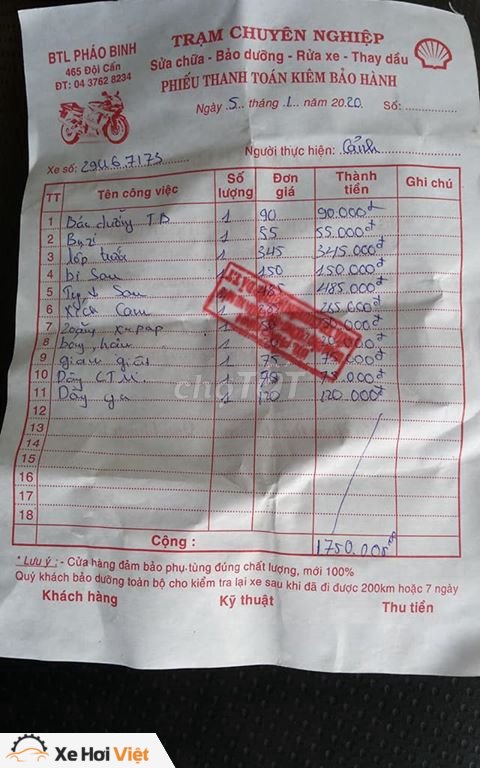 BTL PHÁO BINH
465 Đội Cấn
ĐT: 04 3762 8234
TRẠM CHUYÊN NGHIỆP
Sửa chữa - Bảo dưỡng - Rửa xe - Thay dầu
PHIẾU THANH TOÁN KIÊM BẢO HÀNH
Ngày 5 tháng 1 năm 2020 Số:
Xe số: 29U6.7173 Người thực hiện: Cảnh
TT Tên công việc Số lượng Đơn giá Thành tiền Ghi chú
1 Bảo dưỡng T.B 1 90 90.000đ
2 Bugi 1 55 55.000đ
3 lốp trước 1 345 345.000đ
4 bi sau 1 150 150.000đ
5 sau 1 485 485.000đ
6 Xích Cam 1
7 1
8 1
9 1 75 75.000đ
10 Dây C.T.M. 1
11 Dây ga 1 120 120.000đ
12
13
14
15
16
17
18
Cộng : 1750.000
* Lưu ý : - Cửa hàng đảm bảo phụ tùng đúng chất lượng, mới 100%
Quý khách bảo dưỡng toàn bộ cho kiểm tra lại xe sau khi đã đi được 200km hoặc 7 ngày
Khách hàng Kỹ thuật Thu tiền
chợTỐT
Xe Hơi Việt